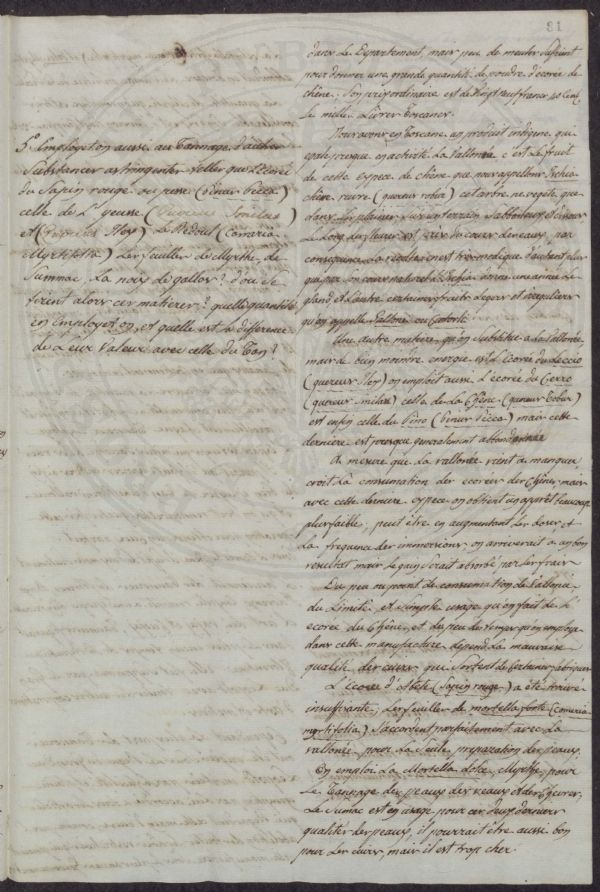 81
5° Employet on aussi au Tannage, d'autres
Substances astringentes telles que l'écorce
du Sapin rouge ou pesse (Pinus Picca)
celle de L'yeuse (quercus Smilax)
et (quercus Ilex) Le Redoul (Corraria
Myrtifolia) Les feuilles de Myrthe, de
Summac, La noix de galles? d'où se
tirent alors ces matieres? quelle quantité
en Employet on, et quelle est la différence
de Leur Valeur avec celle du Tan?
dans Le Departement, mais peu de
pour donner une grande quantité de poudre d'écorce de
chêne. Son prix ordinaire est de Vingt neuf francs 40 Cent.
Le mille Livres Toscanes.
Nous avons en Toscane un produit indigene qui
egale presque en activité La Vallonée c'est Le fruit
de cette espece de chêne que nous appellons Ischia
chêne rure (quercus robur) cet arbre ne vegete que
dans Les plaines sur un terrain Sabloneux et
Le Long des fleuves et des cours des eaux, par
consequence La recolte en est très modique d'autant plus
que par Son cours naturel L'Ischia donne une année Le
gland et L'autre certains fruits epars et irreguliers
qu'on appelle Vallonée ou
Une autre matiere qu'on substitue a La Vallonée
mais de bien moindre energie est L'écorce du Leccio
(quercus Ilex) on emploit aussi L'écorce du Cerro
(quercus smilax) celle de La Chêne (quercus Robur)
est enfin celle du Pino (Pinus Picca) mais cette
derniere est presque generalement abbandonnée
A mesure que La vallonée vient a manquer
croit La consumation des ecorces des Chênes, mais
avec cette derniere espece on obtient un apprêt beaucoup
plus faible; peut être en augmentant Les doses, et
La frequence des immersions on arriverait a un bon
resultat mais Le gain Serait absorbé par Les frais
Du peu ou point de consumation de Vallonée
du Limité, et simple usage qu'on fait de L'
ecorce du Chêne, et du peu de temps qu'on employe
dans cette manufacture depend La mauvaise
qualité des cuirs, qui Sortent de Certaines fabriques
L'écorce d'Abete (Sapin rouge) a été trouvée
insuffisante; Les feuilles de mortella forte (Comaria
myrtifolia) s'accordent parfaitement avec La
vallonée pour La Seule preparation des peaux
On emploi La Mortella dolce, Myrthe pour
Le Tannage des peaux des veaux et des Chevres,
Le Sumac est en usage pour ces deux dernieres
qualités des peaux, il pourrait être aussi bon
pour Les cuirs, mais il est trop cher.